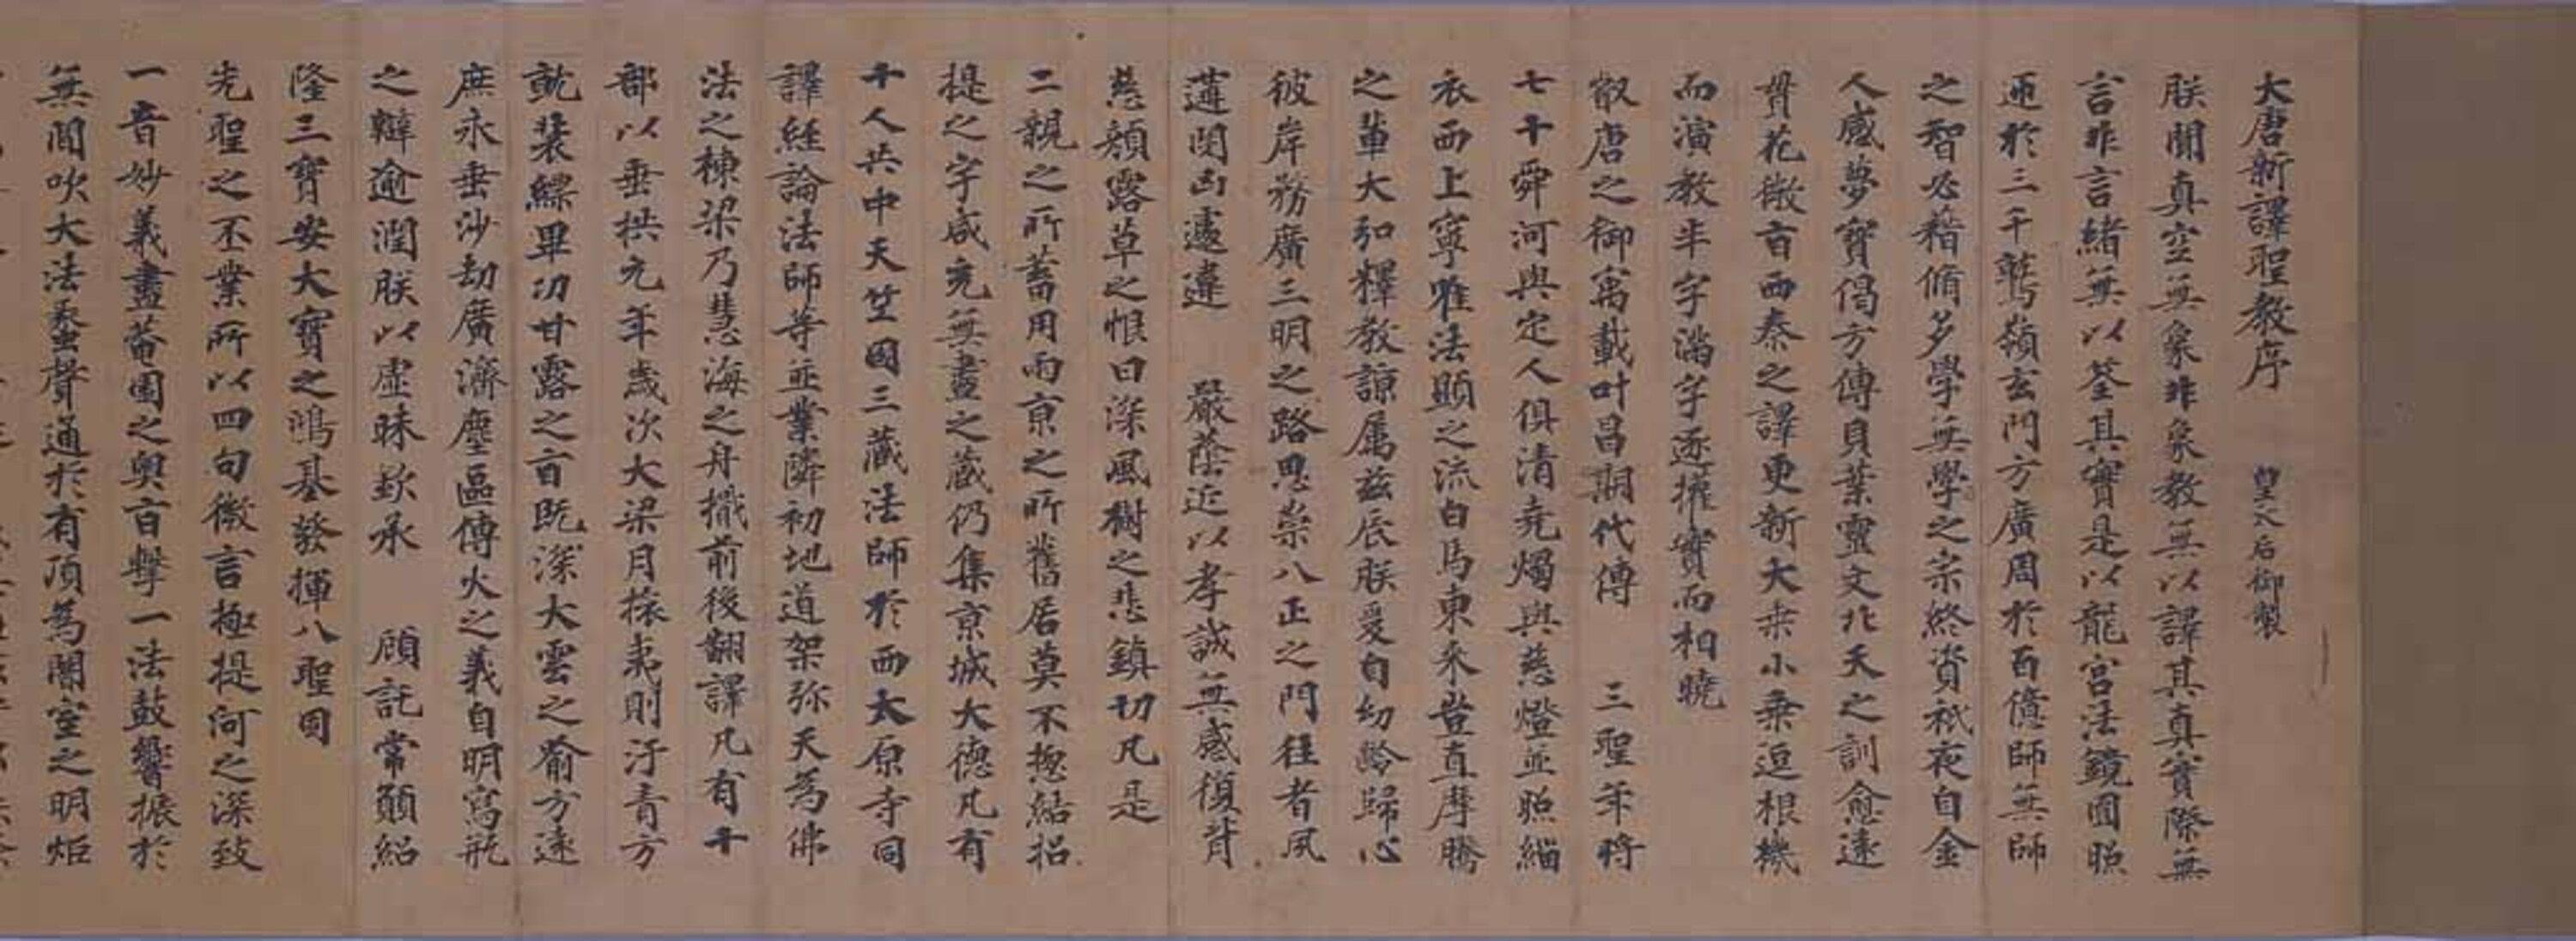 大唐新譯聖教序 皇太后御製
朕聞真空無象非象教無以譯其真實際無
言非言緒無以荃其實是以龍宮法鏡圓照
逈於三千鷲嶺玄門方廣周於百億師無師
之智必藉脩多學無學之宗終資祇夜自金
人感夢寶偈方傳貝葉靈文北天之訓愈遠
貫花微旨西秦之譯更新大乘小乘逗根機
而演教半字滿字逐權實而相曉
叡唐之御寓載叶昌期代傳 三聖年將
七十舜河與定人俱清堯燭與慈燈並照緇
衣西上寧唯法顯之流白馬東來豈直摩騰
之輩大弘釋教諒属兹辰朕爰自幼齡歸心
彼岸務廣三明之路思崇八正之門往者夙
遘閔凶遽違 嚴蔭近以孝誠無感復背
慈顏露草之恨日深風樹之悲鎮切凡是
二親之所蓄用兩京之所舊居莫不揔結招
提之宇咸充無盡之藏仍集京城大德凡有
十人共中天竺國三藏法師於西太原寺同
譯經論法師等並業隣初地道架弥天為佛
法之棟梁乃慧海之舟檝前後翻譯凡有十
部以垂拱元年歲次大梁月捺夷則汗青方
就裝縹畢功甘露之旨既深大雲之喻方遠
庶永垂沙劫廣濟塵區傳火之義自明寫瓶
之辯逾潤朕以虛昧欽承 顧託常願紹
隆三寶安大寶之鴻基發揮八聖固
先聖之丕業所以四句微言極提河之深致
一音妙義盡菴園之奥旨擊一法鼓響振於
無間吹大法蠡聲通於有頂為闇室之明炬